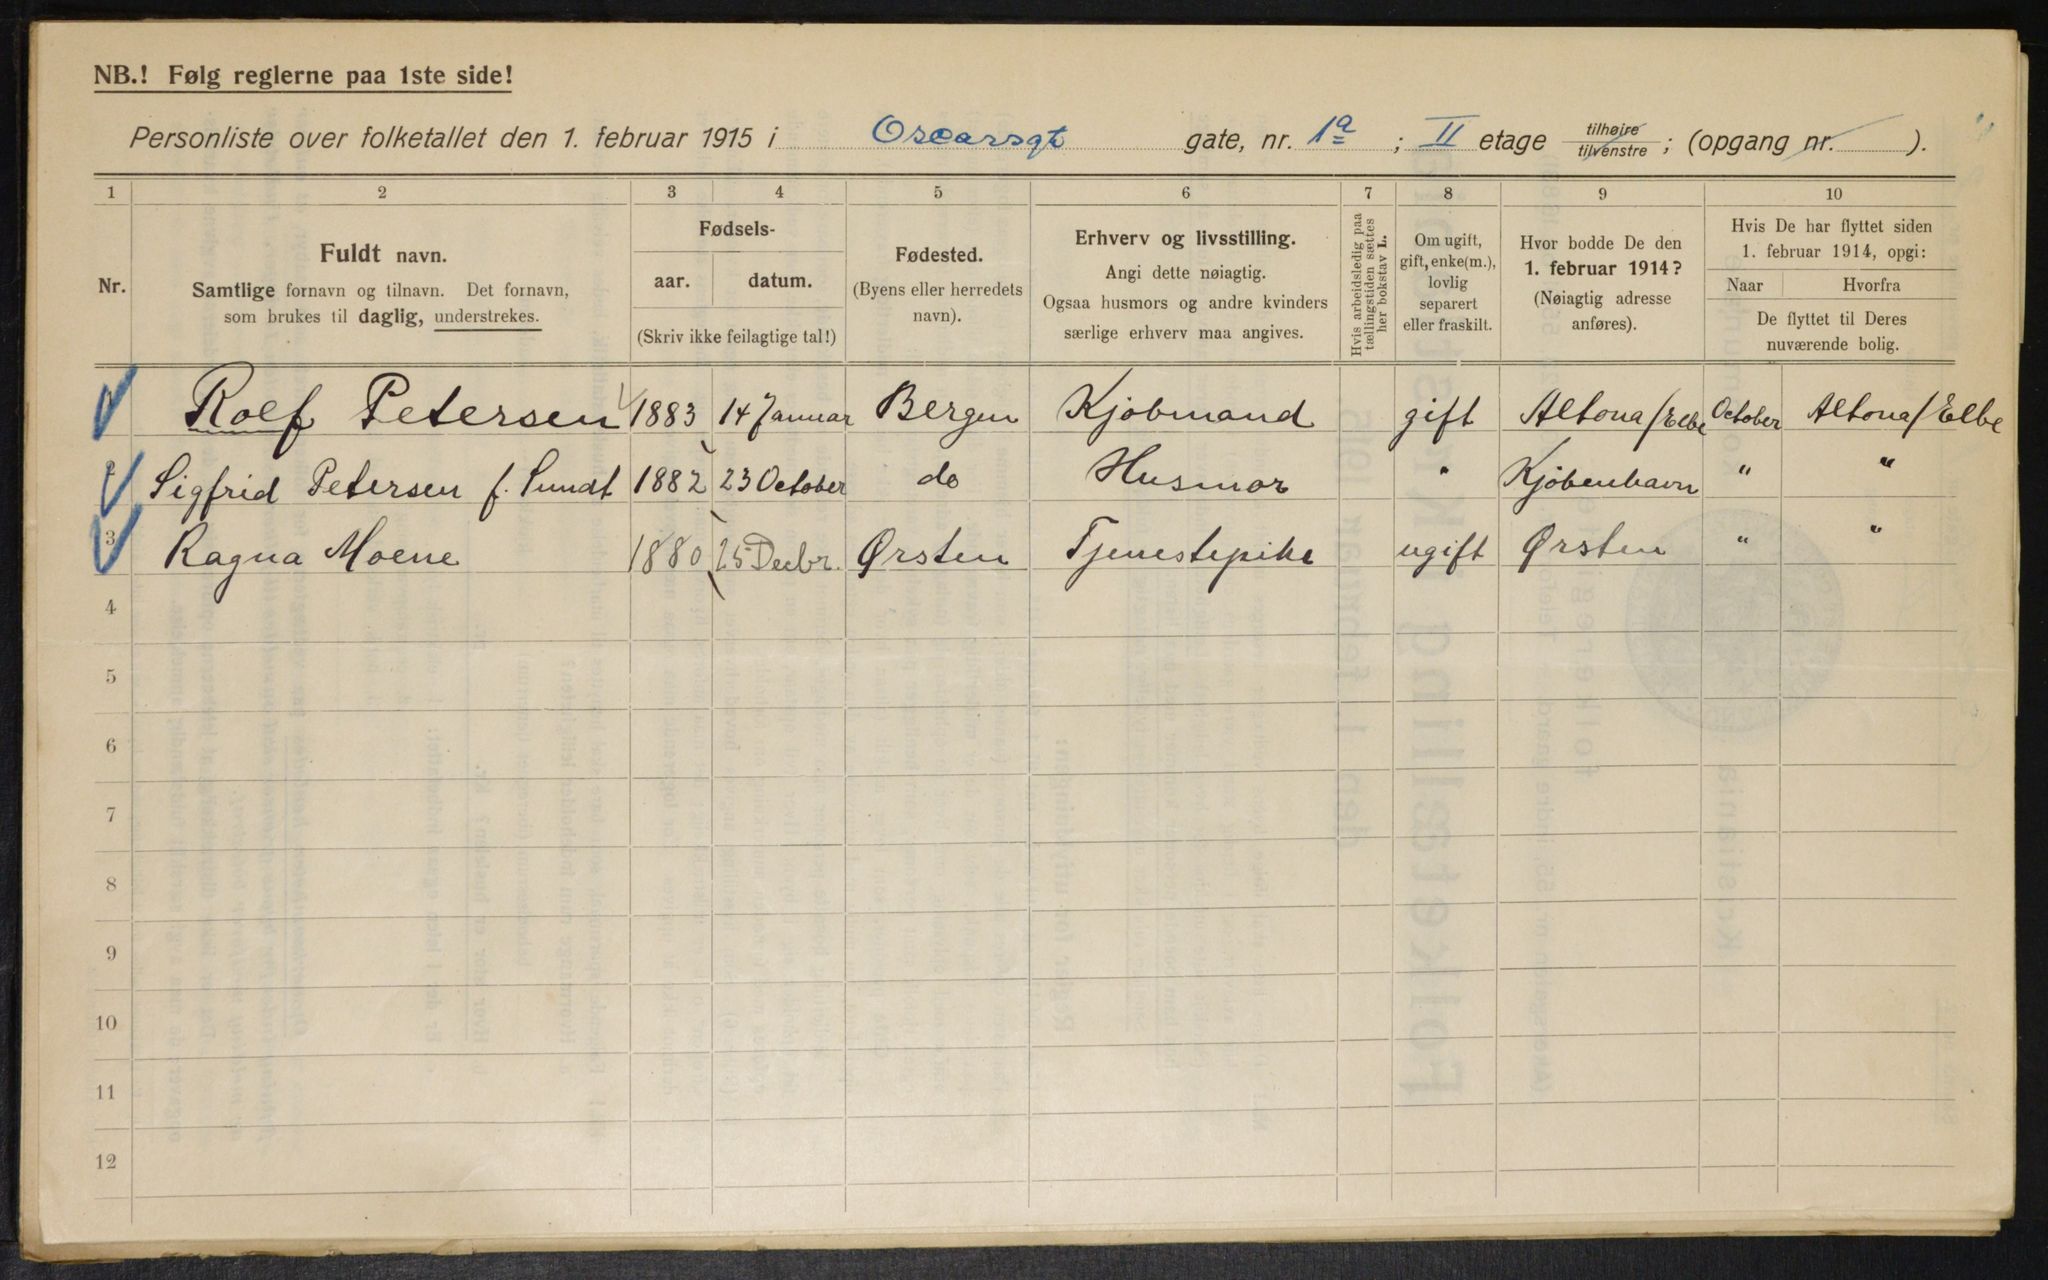 NB.! Følg reglerne paa 1ste side!
Personliste over folketallet den 1. februar 1915 i Oscarsgt gate, nr. 1a ; II etage tilhøire tilvenstre ; (opgang nr. ).
1 2 3 4 5 6 7 8 9 10
Nr.
Fuldt navn.
Samtlige fornavn og tilnavn. Det fornavn,
som brukes til daglig, understrekes.
Fødsels-
aar. datum.
(Skriv ikke feilagtige tal!)
Fødested.
(Byens eller herredets
navn).
Erhverv og livsstilling.
Angi dette nøiagtig.
Ogsaa husmors og andre kvinders
særlige erhverv maa angives.
Hvis arbeidsledig paa
tællingstiden sættes
her bokstav L.
Om ugift,
gift, enke(m.),
lovlig
separert
eller fraskilt.
Hvor bodde De den
1. februar 1914?
(Nøiagtig adresse
anføres).
Hvis De har flyttet siden
1. februar 1914, opgi:
Naar Hvorfra
De flyttet til Deres
nuværende bolig.
Rolf Petersen 1883 14 Januar Bergen Kjöbmand gift Altona/Elbe October Altona/Elbe
2 Sigfrid Petersen f. Sundt 1882 23 October do Husmor " Kjöbenhavn " "
3 Ragna Moene 1880 25 Decbr. Ørsten Tjenestepike ugift Ørsten " "
4
5
6
7
8
9
10
11
12